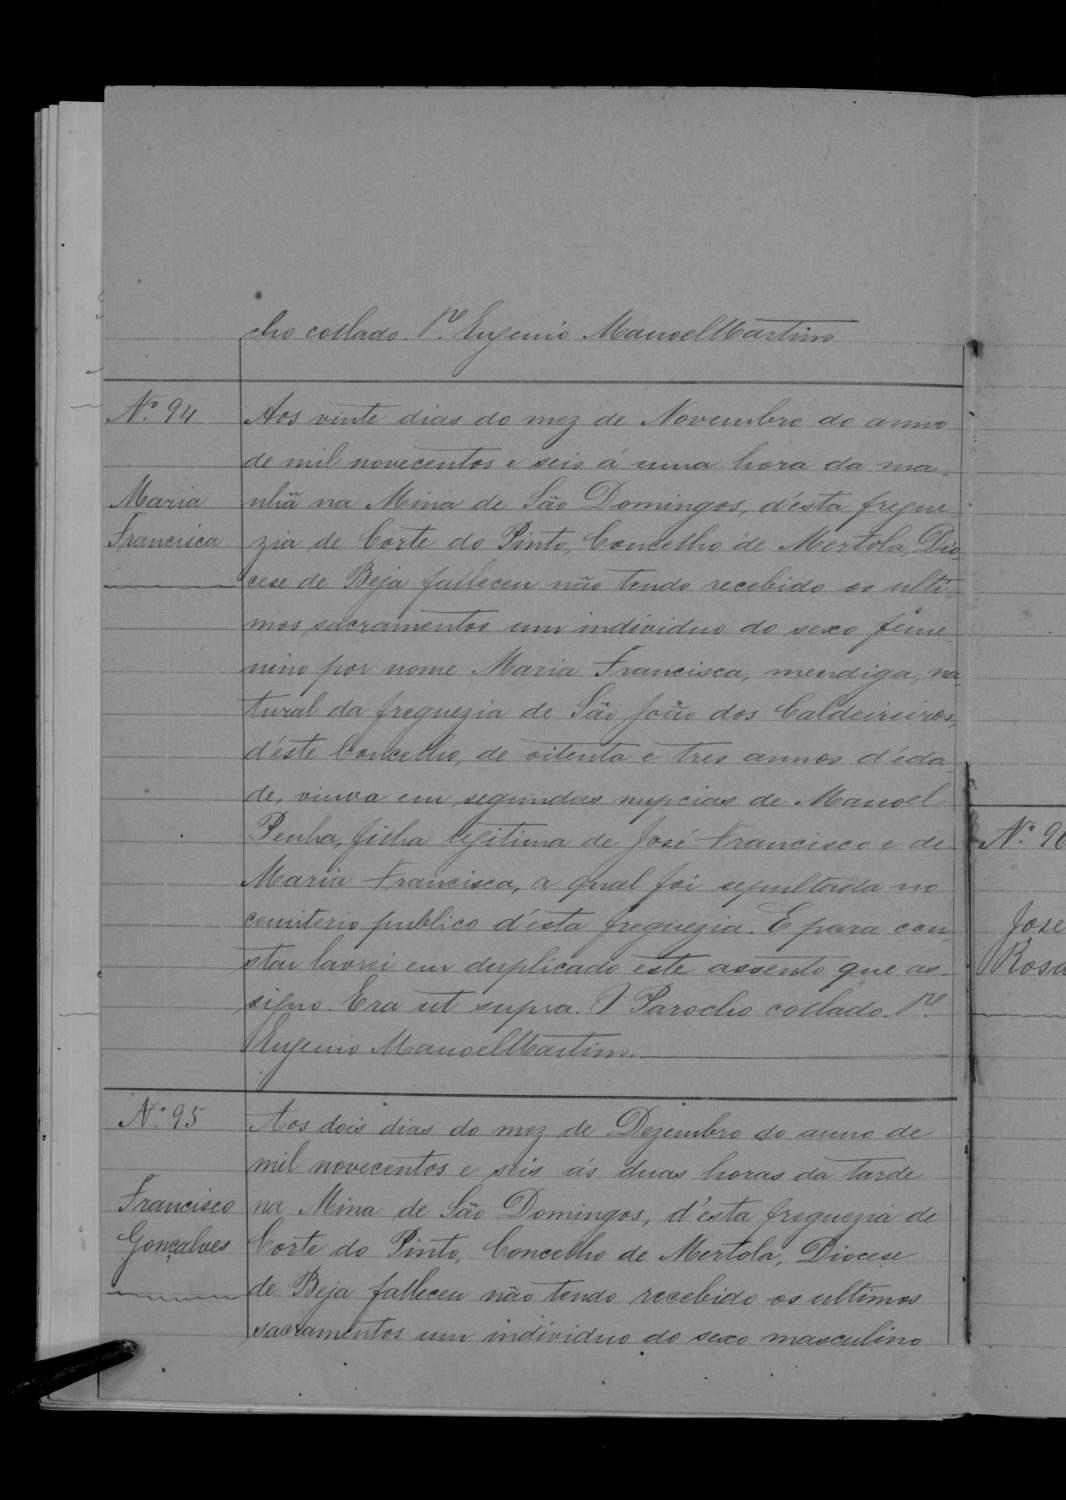 cho collado. P.e Eugenio Manoel Martins
N.o 94
Maria
Francisca
Aos vinte dias do mez de Novembro do anno
de mil novecentos e seis á uma hora da ma-
nhã na Mina de São Domingos, d'esta fregue-
zia de Corte do Pinto, Concelho de Mertola, Dio-
cese de Beja falleceu não tendo recebido os ulti-
mos sacramentos um individuo do sexo feme-
nino por nome Maria Francisca, mendiga, na-
tural da freguezia de São João dos Caldeireiros,
d'éste Concelho, de oitenta e tres annos d'éda-
de, viuva em segundas nupcias de Manoel
Penha, filha legitima de José Francisco e de
Maria Francisca, a qual foi sepultada no
cemiterio publico d'ésta freguezia. E para con-
star lavrei em duplicado este assento que as-
signo. Era ut supra. O Parocho collado. P.e
Eugenio Manoel Martins
N.o 95
Francisco
Gonçalves
Aos dois dias do mez de Dezembro do anno de
mil novecentos e seis ás duas horas da tarde
na Mina de São Domingos, d'ésta freguezia de
Corte do Pinto, Concelho de Mertola, Diocese
de Beja falleceu não tendo recebido os ultimos
sacramentos um individuo do sexo masculino
N.o 96
José
Rosa